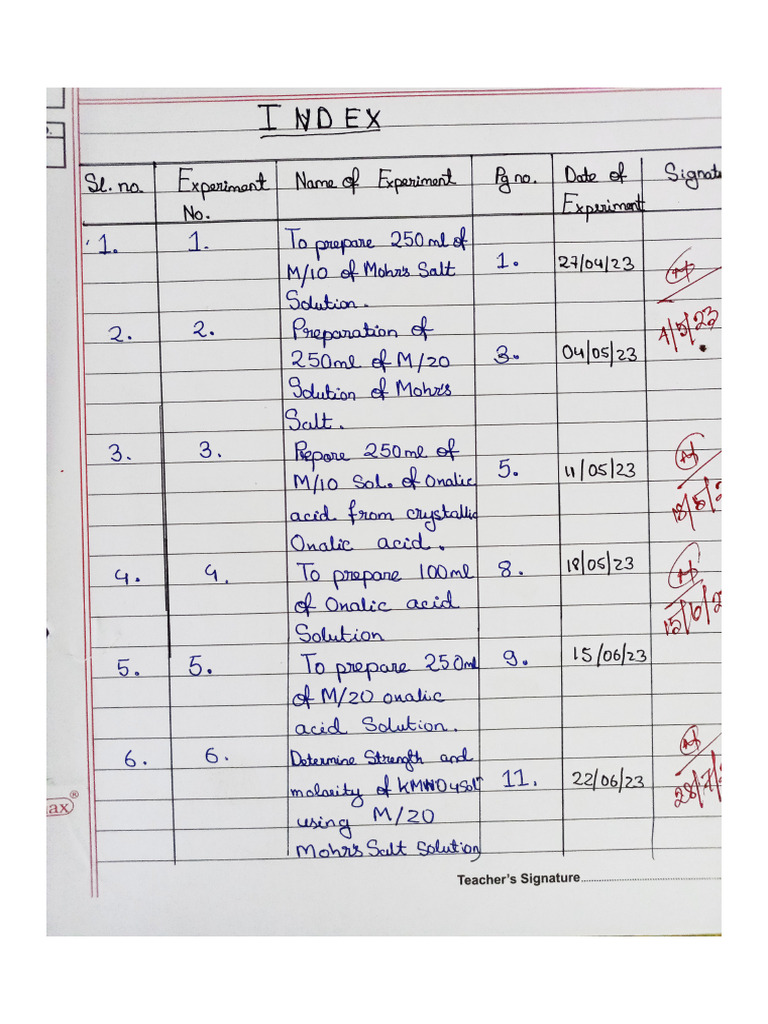 INDEX
Sl. no. Experiment No. Name of Experiment Pg no. Date of Experiment
1. 1. To prepare 250ml of
M/10 of Mohr's Salt 1. 27/04/23
Solution.
2. 2. Preparation of 4/5/23
250ml of M/20 3. 04/05/23
Solution of Mohr's
Salt.
3. 3. Prepare 250ml of
M/10 Sol. of Onalic 5. 11/05/23
acid from crystallic
Onalic acid.
4. 4. To prepare 100ml 8. 18/05/23
of Onalic acid
Solution
5. 5. To prepare 250ml 9. 15/06/23
of M/20 onalic
acid Solution.
6. 6. Determine Strength and
molarity of KMNO4 Solⁿ 11. 22/06/23
using M/20
Mohr's Salt Solution
ax®
Teacher's Signature